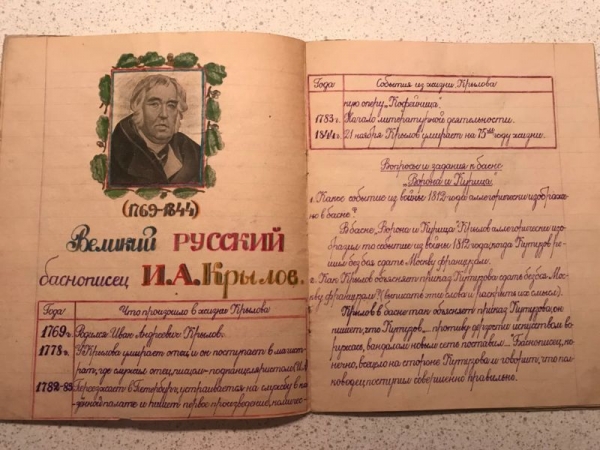 (1769-1844)
Великий русский
баснописец И.А. Крылов.
Года Что произошло в жизни Крылова
1769г. Родился Иван Андреевич Крылов.
1778г. У Крылова умирает отец и он поступает в магист-
рат, где служил отец, писцом-
1782-83 Переезжает в Петербург, устраивается на службу в ка-
зённой палате и пишет первое произведение, комичес-
Года События из жизни Крылова
кую оперу „Кофейница".
1783г. Начало литературной деятельности.
1844г. 21 ноября Крылов умирает на 75ом году жизни.
Вопросы и задания к басне
„Ворона и Курица".
1. Какое событие из войны 1812 года аллегорически изображе-
но в басне?
В басне „Ворона и Курица" Крылов аллегорически изо-
бразил то событие из войны 1812 года, когда Кутузов ре-
шил без боя сдать Москву французам.
2. Как Крылов объясняет приказ Кутузова сдать без боя Мос-
кву французам? (Выписать эти слова и раскрыть их смысл).
Крылов в басне так объясняет приказ Кутузова, он
пишет, что Кутузов „... противу дерзости искусством во-
оружась, вандалам новым сеть поставил..." Баснописец, ко-
нечно, всецело на стороне Кутузова и говорит, что пол-
ководец поступил совершенно правильно.